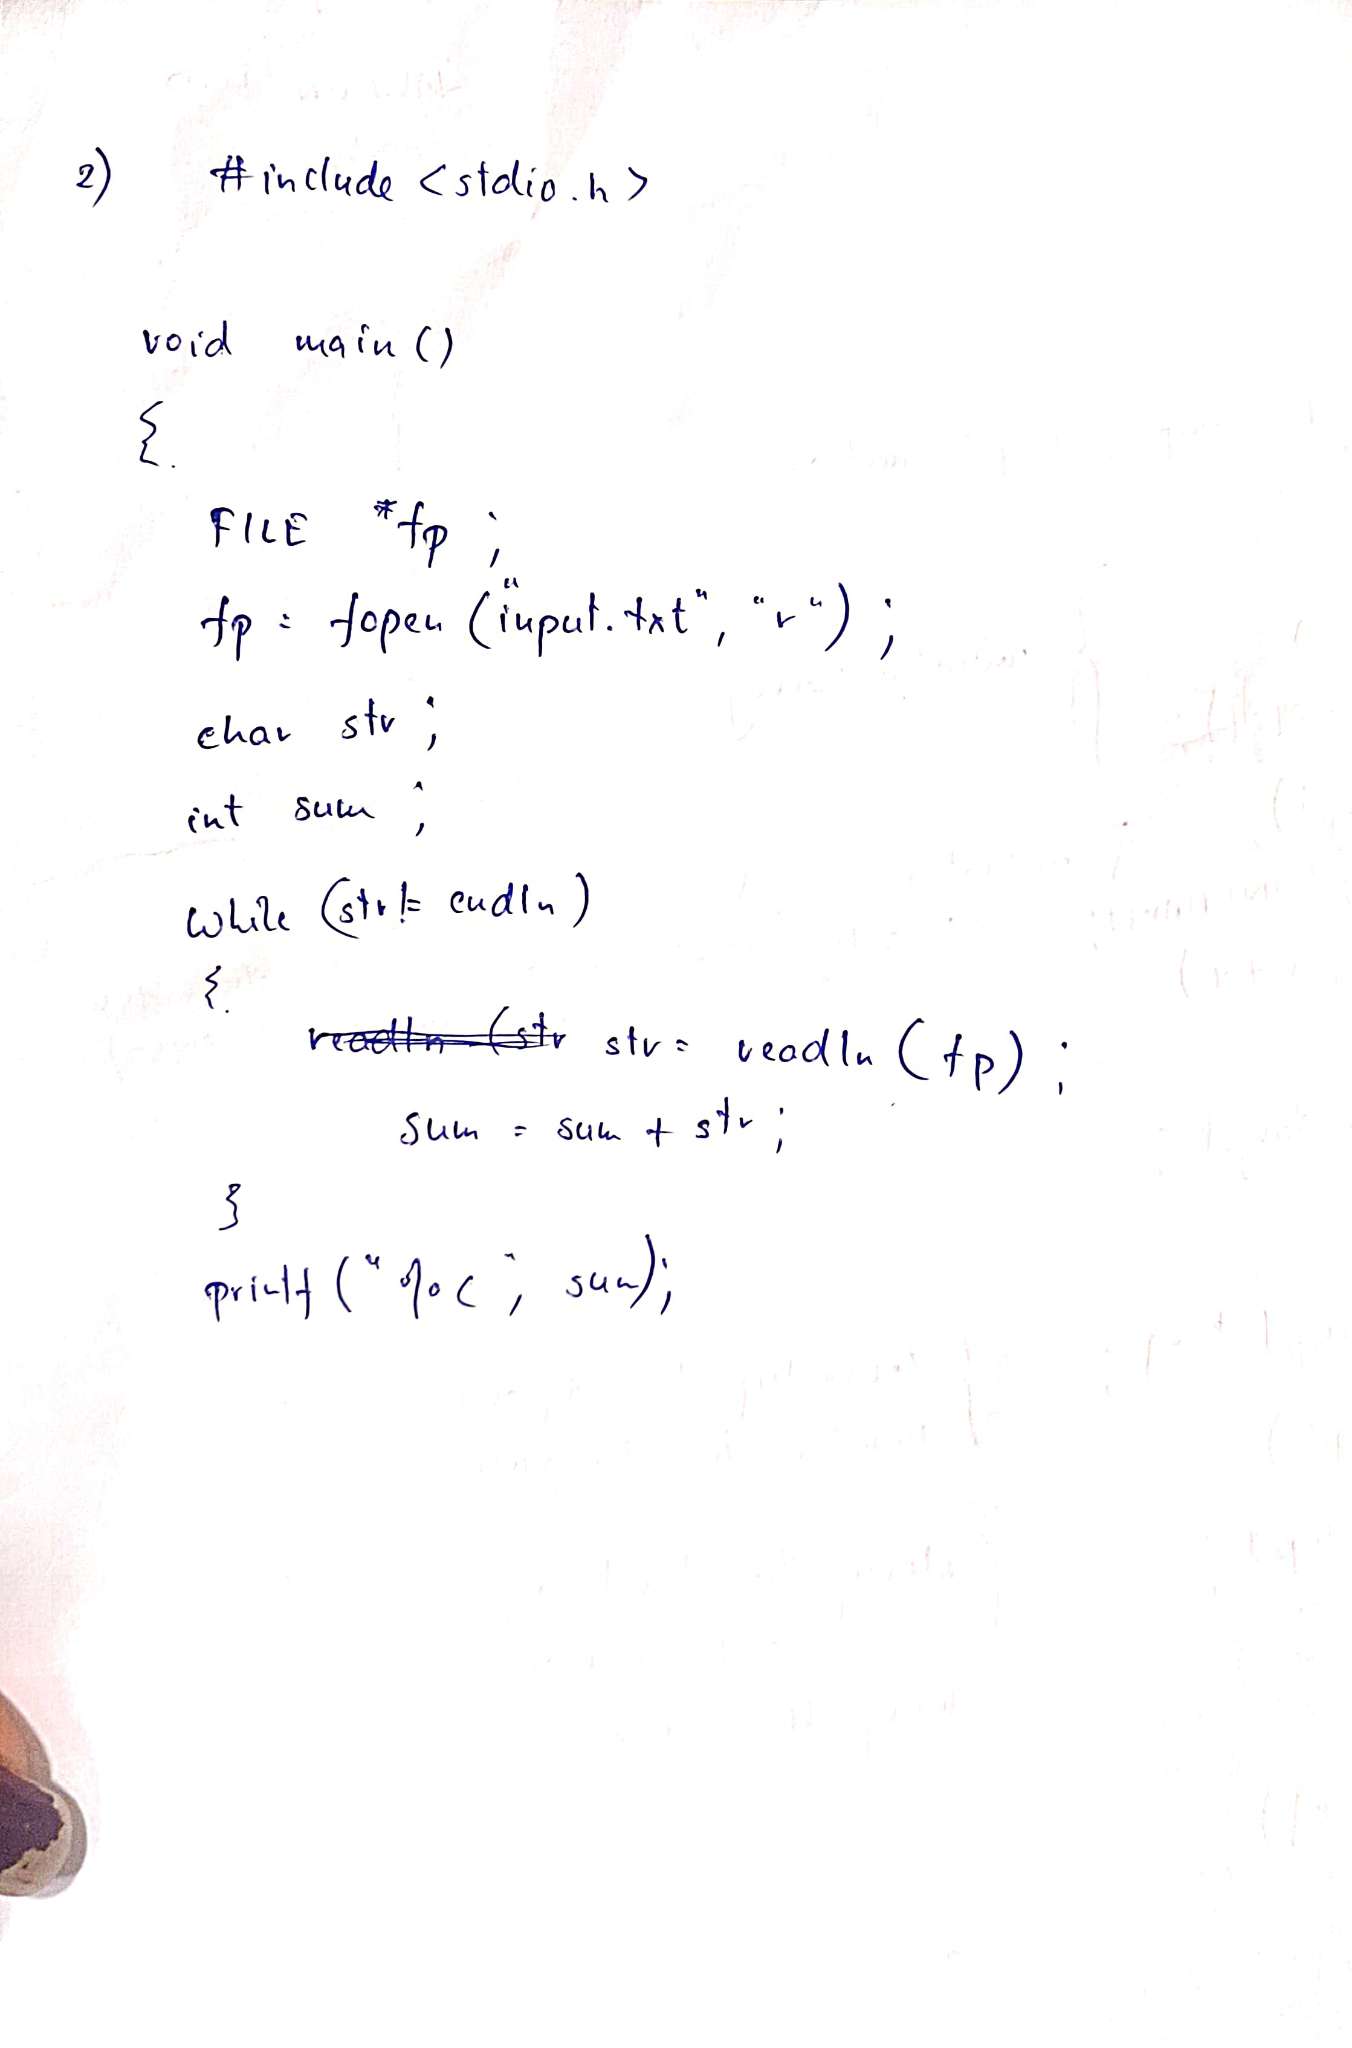 2) #include <stdio.h>
void main ()
{
FILE *fp ;
fp = fopen ("input.txt", "r") ;
char str ;
int sum ;
while (str != endln)
{
readln (str str = readln (fp) ;
sum = sum + str ;
}
printf ("%c", sum);